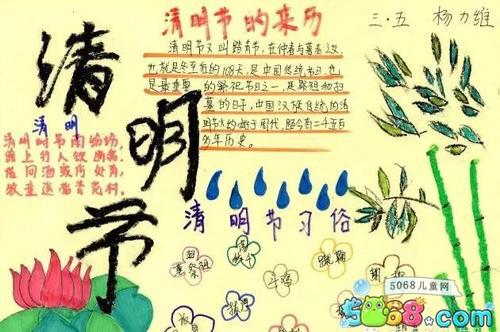 清明节的来历
三·五 杨力维
清明节又叫踏青节，在仲春与暮春之交，
也就是冬至后的108天，是中国传统节日，也
是最重要的祭祀节日之一，是祭祖和扫
墓的日子，中国汉族传统的清
明节大约始于周代，距今有二千五百
多年历史。
清明节
清明
清明时节雨纷纷，
路上行人欲断魂。
借问酒家何处有，
牧童遥指杏花村。
清明节习俗
扫墓祭祖
荡秋千
斗鸡
蹴鞠
植树
插柳
5068儿童网
5068.com